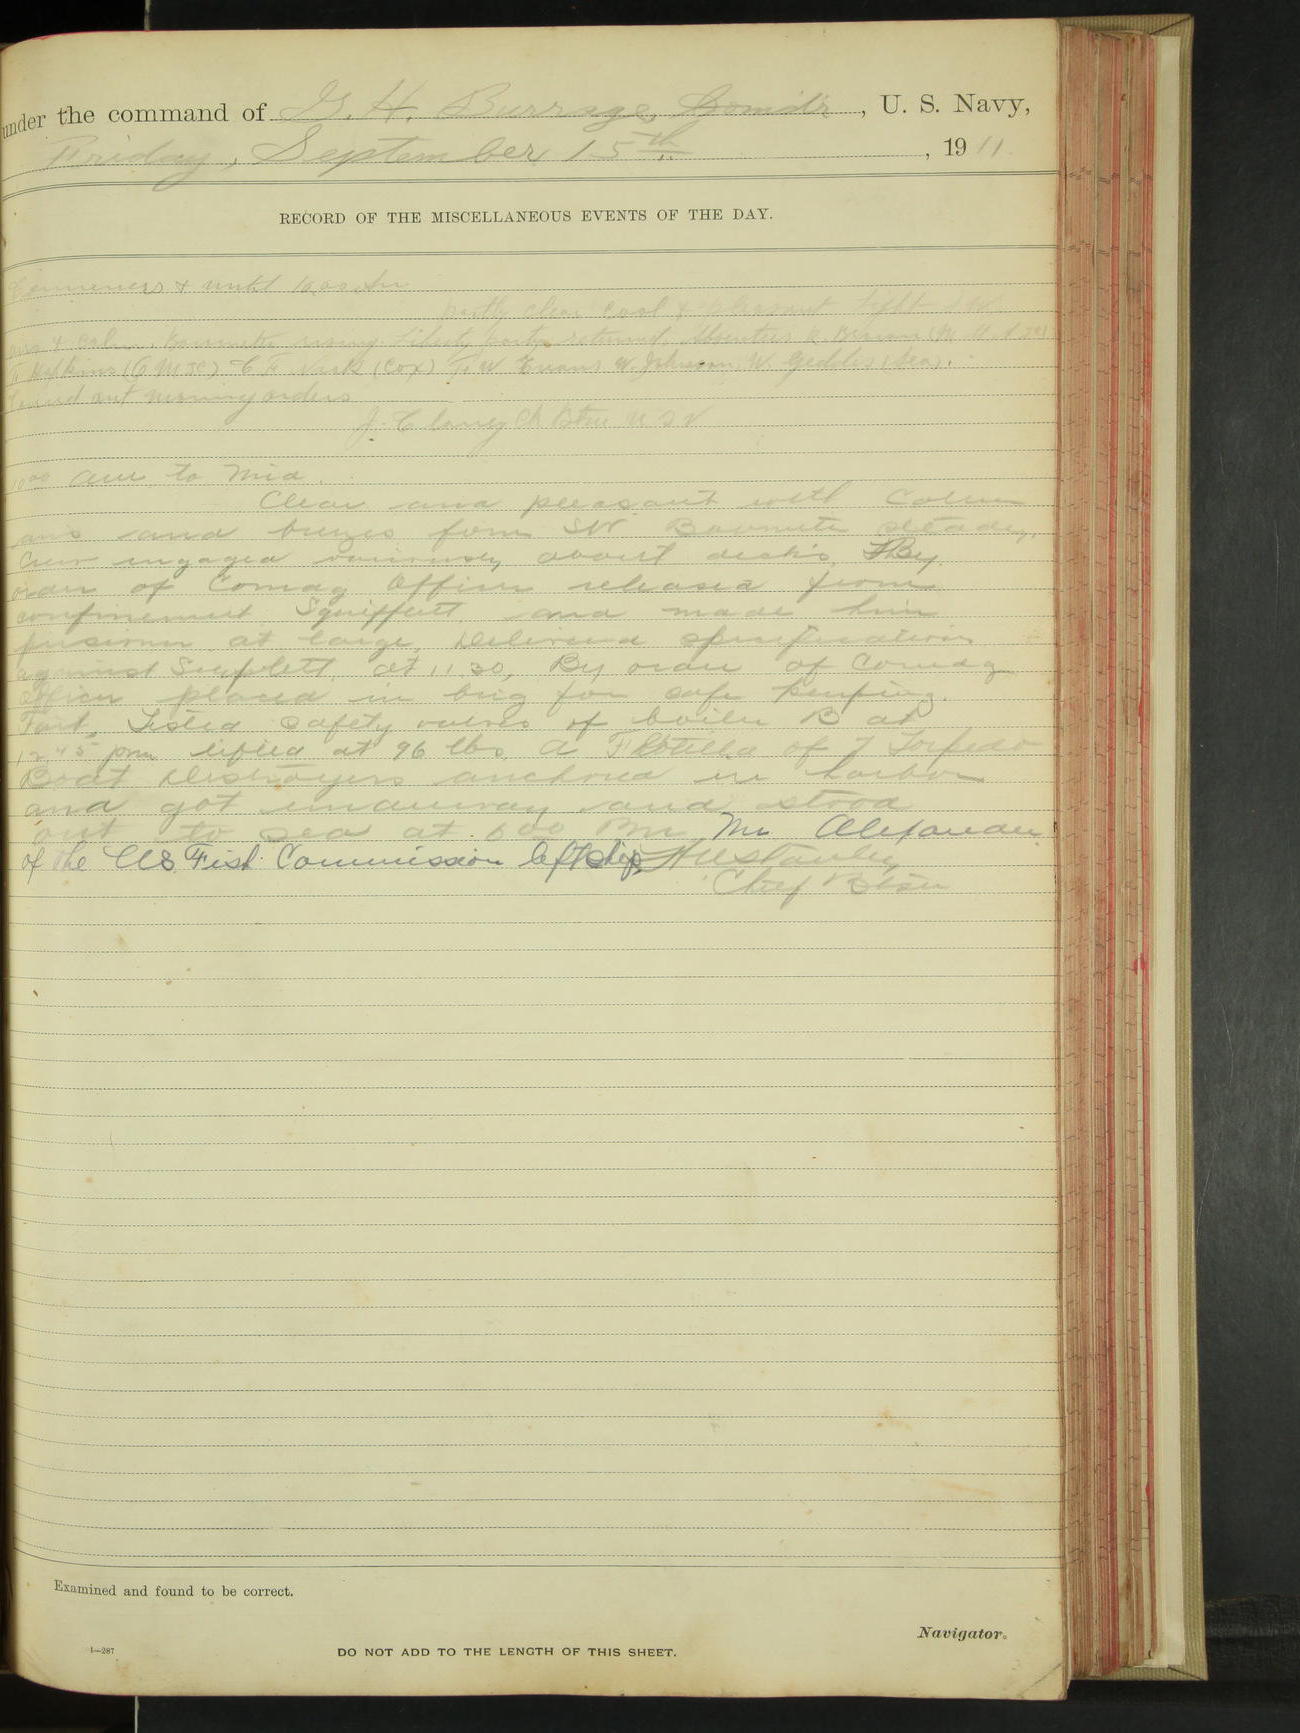 under the command of G. H. Burrage, Comdr, U. S. Navy,
Friday, September 15th, 1911.
RECORD OF THE MISCELLANEOUS EVENTS OF THE DAY.
Commences & until 10.00 Am
Partly clear cool & pleasant light S W
airs & calm. Barometer rising. Liberty party returned. Absentees
Hopkins (G M 3C) C F (Cox) F. W Evans W. Johnson, W. Geddes (Sea).
Carried out morning orders
J. Clancy Ch Btsn U S N
10 00 am to Mid.
Clear and pleasant with calm
airs and breezes from SW Barometer steady.
Crew engaged variously about decks. By
order of Comdg Officer released from
confinement and made him
prisoner at large. Delivered specification
against at 11.30, By order of Comdg
Officer placed in brig for safe keeping.
Port, Tested safety valves of boiler B at
12 45 pm lifted at 96 lbs. A Flotilla of 7 Torpedo
Boat Destroyers anchored in harbor
and got underway and stood
out to sea at 6 00 Pm Mr Alexander
of the US Fish Commission left ship. H Stanley
Chief Btsn
Examined and found to be correct.
Navigator.
1—287
DO NOT ADD TO THE LENGTH OF THIS SHEET.